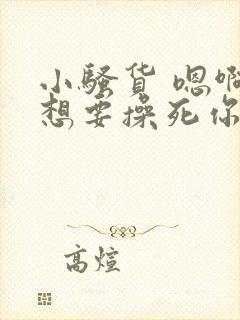 小骚货 嗯啊
想要操死你
高煊